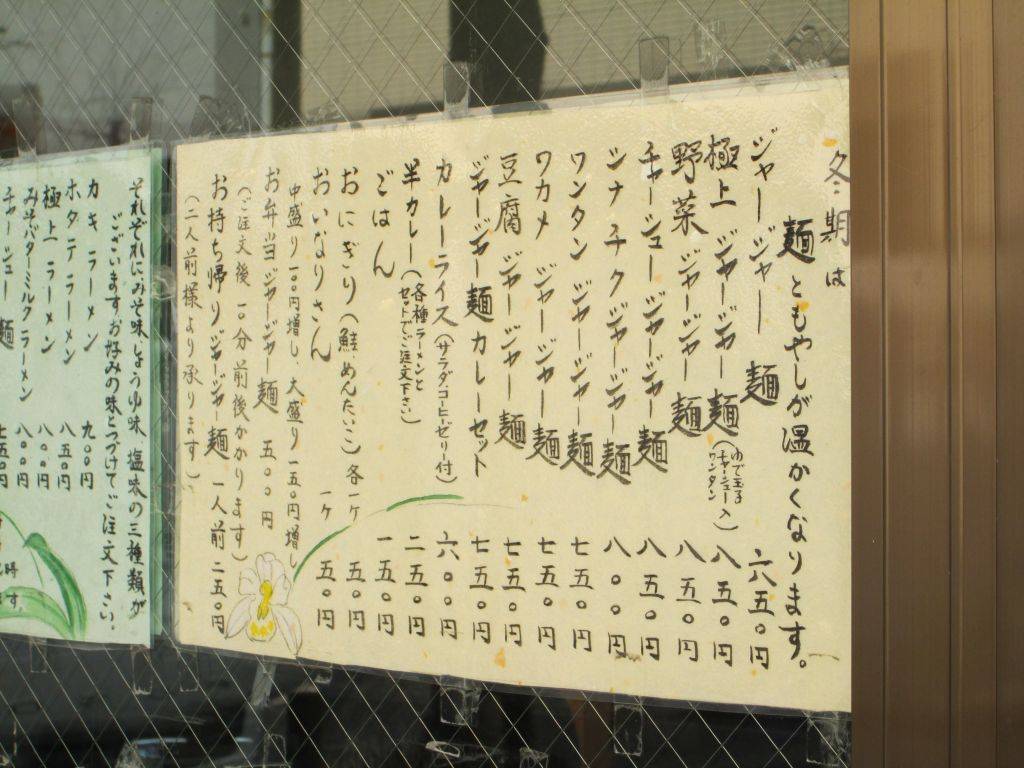 冬期は
麺ともやしが温かくなります。
ジャージャー麺 六五〇円
極上ジャージャー麺(ゆで玉子チャーシューワンタン入) 八五〇円
野菜ジャージャー麺 八五〇円
チャーシュージャージャー麺 八五〇円
シナチクジャージャー麺 八〇〇円
ワンタンジャージャー麺 七五〇円
ワカメジャージャー麺 七五〇円
豆腐ジャージャー麺 七五〇円
ジャージャー麺カレーセット 七五〇円
カレーライス(サラダコーヒーゼリー付) 六〇〇円
半カレー(各種ラーメンとセットでご注文下さい) 二五〇円
ごはん 一五〇円
おにぎり(鮭めんたいこ)各一ヶ 五〇円
おいなりさん 一ヶ 五〇円
中盛り一〇〇円増し、大盛り一五〇円増し
お弁当ジャージャー麺 五〇〇円
(ご注文後一〇分前後かかります)
お持ち帰りジャージャー麺 一人前 二五〇円
(二人前様より承ります)
それぞれにみそ味しょうゆ味 塩味の三種類が
ございます。お好みの味とつけてご注文下さい。
カキラーメン 九〇〇円
ホタテラーメン 八五〇円
極上ラーメン 八〇〇円
みそバターミルクラーメン 八〇〇円
チャーシュー麺 七五〇円